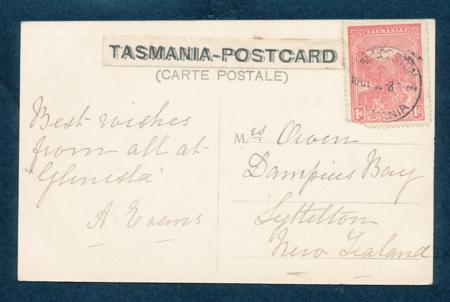 TASMANIA-POSTCARD
(CARTE POSTALE)
TASMANIA
1d 1d
Best wishes
from all at
"Glenista"
A Evans
Mrs Owen
Dampiers Bay
Lyttelton
New Zealand